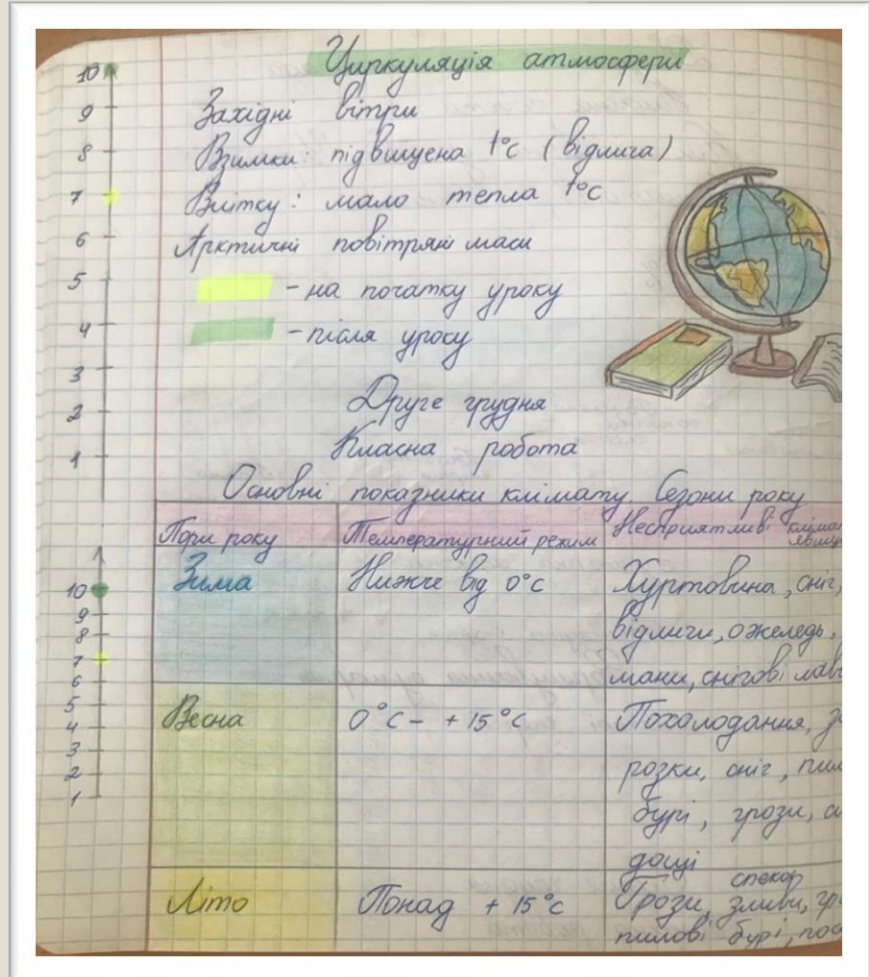 Циркуляція атмосфери
10
9
8
7
6
5
4
3
2
1
Західні вітри
Взимки: підвищена t°c (відлига)
Влітку: мало тепла t°c
Арктичні повітряні маси
- на початку уроку
- після уроку
Друге грудня
Класна робота
Основні показники клімату. Сезони року
Пори року Температурний режим Несприятливі
10
9
8
7
6
5
4
3
2
1
Зима Нижче від 0°c Хуртовина, сніг,
відлиги, ожеледь,
снігові
Весна 0°C - +15°C Похолодання,
розки, сніг,
бурі, грози,
дощі
спекор
Літо Понад +15°C Грози, зливи,
пилові бурі,